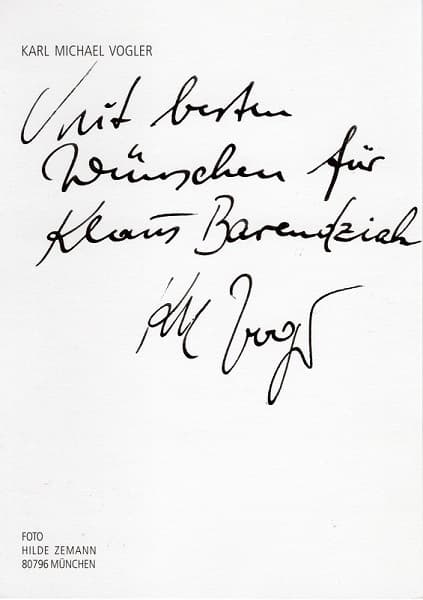 KARL MICHAEL VOGLER
Mit besten
Wünschen für
Klaus Barendziak
KM Vogler
FOTO
HILDE ZEMANN
80796 MÜNCHEN